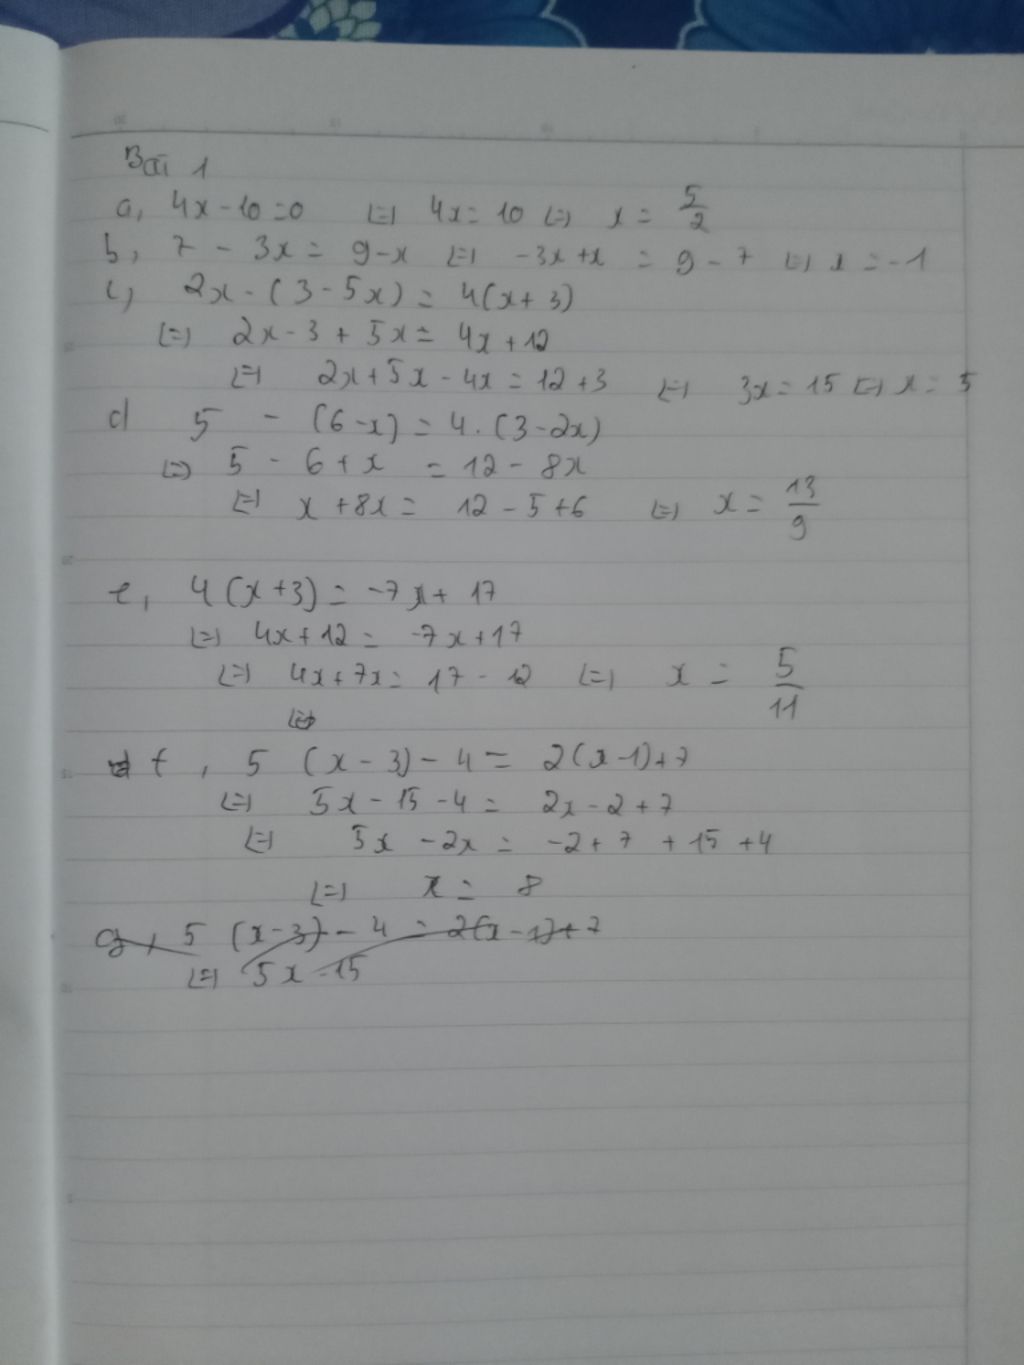 Bài 1
a, 4x - 10 = 0 <=> 4x = 10 <=> x = 5/2
b, 7 - 3x = 9 - x <=> -3x + x = 9 - 7 <=> x = -1
c, 2x - (3 - 5x) = 4(x + 3)
<=> 2x - 3 + 5x = 4x + 12
<=> 2x + 5x - 4x = 12 + 3 <=> 3x = 15 <=> x = 5
d 5 - (6 - x) = 4. (3 - 2x)
<=> 5 - 6 + x = 12 - 8x
<=> x + 8x = 12 - 5 + 6 <=> x = 13/9
e, 4(x + 3) = -7x + 17
<=> 4x + 12 = -7x + 17
<=> 4x + 7x = 17 - 12 <=> x = 5/11
<=>
f, 5 (x - 3) - 4 = 2(x - 1) + 7
<=> 5x - 15 - 4 = 2x - 2 + 7
<=> 5x - 2x = -2 + 7 + 15 + 4
<=> x = 8
g, 5 (x - 3) - 4 = 2(x - 1) + 7
<=> 5x - 15